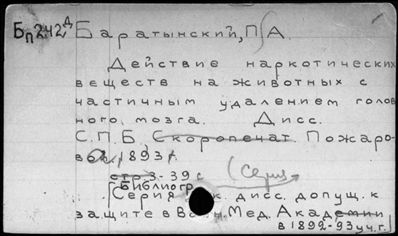 Бп242д Баратынский, П А.
Действие наркотических
веществ на животных с
частичным удалением голов
ного мозга. Дисс.
С.П.Б. Скоропечат Пожаро-
в 1893.
стр 3-39 с (серия
Библиогр
Серия дисс. допущ. к
защите в Мед. Академии
в 1892-93 уч. г.